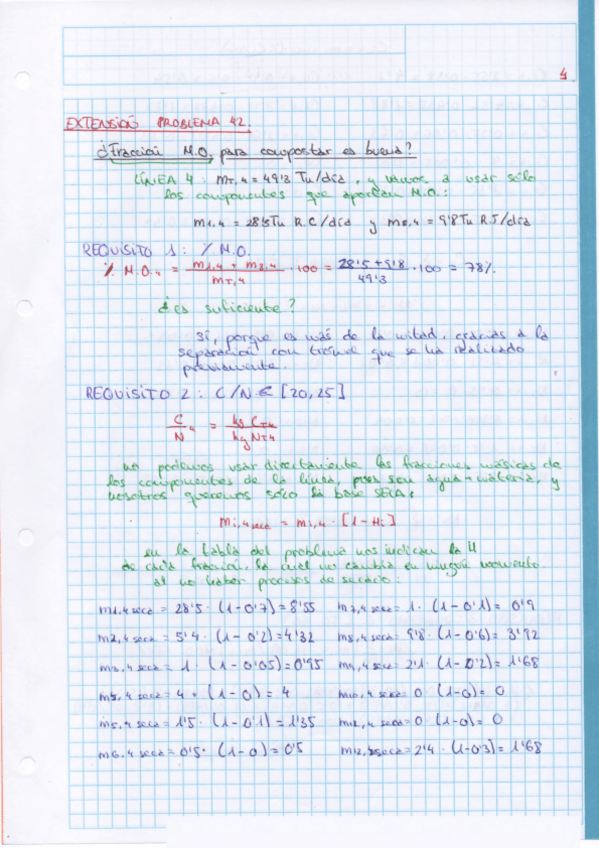 4
EXTENSIÓN PROBLEMA 42.
¿Fracción M.O. para compostar es buena?
LÍNEA 4: mT,4 = 49'3 Tu/día, y vamos a usar sólo
los componentes que aportan M.O.:
m1,4 = 28'5 Tu R.C/día y m8,4 = 9'8 Tu R.J/día
REQUISITO 1: % M.O.
% M.O.4 = (m1,4 + m8,4)/mT,4 · 100 = (28'5 + 9'8)/49'3 · 100 = 78%
¿es suficiente?
Sí, porque es más de la mitad, gracias a la
separación con trómel que se ha realizado
previamente.
REQUISITO 2: C/N ∈ [20,25]
C/N 4 = kg CT4 / kg NT4
no podemos usar directamente las fracciones másicas de
los componentes de la línea, pues son agua + materia, y
nosotros queremos sólo la base SECA:
mi,4 seca = mi,4 · [1-Hi]
en la tabla del problema nos indican la H
de cada fracción, la cual no cambia en ningún momento
al no haber proceso de secado:
m1,4 seca = 28'5 · (1-0'7) = 8'55 m7,4 seca = 1 · (1-0'1) = 0'9
m2,4 seca = 5'4 · (1-0'2) = 4'32 m8,4 seca = 9'8 · (1-0'6) = 3'92
m3,4 seca = 1 · (1-0'05) = 0'95 m9,4 seca = 2'1 · (1-0'2) = 1'68
seca = 4 · (1-0) = 4 m10,4 seca = 0 · (1-0) = 0
m5,4 seca = 1'5 · (1-0'1) = 1'35 seca = 0 · (1-0) = 0
m6,4 seca = 0'5 · (1-0) = 0'5 seca = 2'4 · (1-0'3) = 1'68